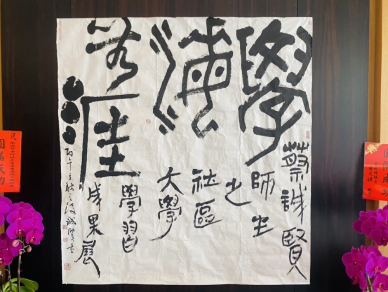 學
海
无涯
蔡誠賢
師生
之
社區
大學
學習
成果展